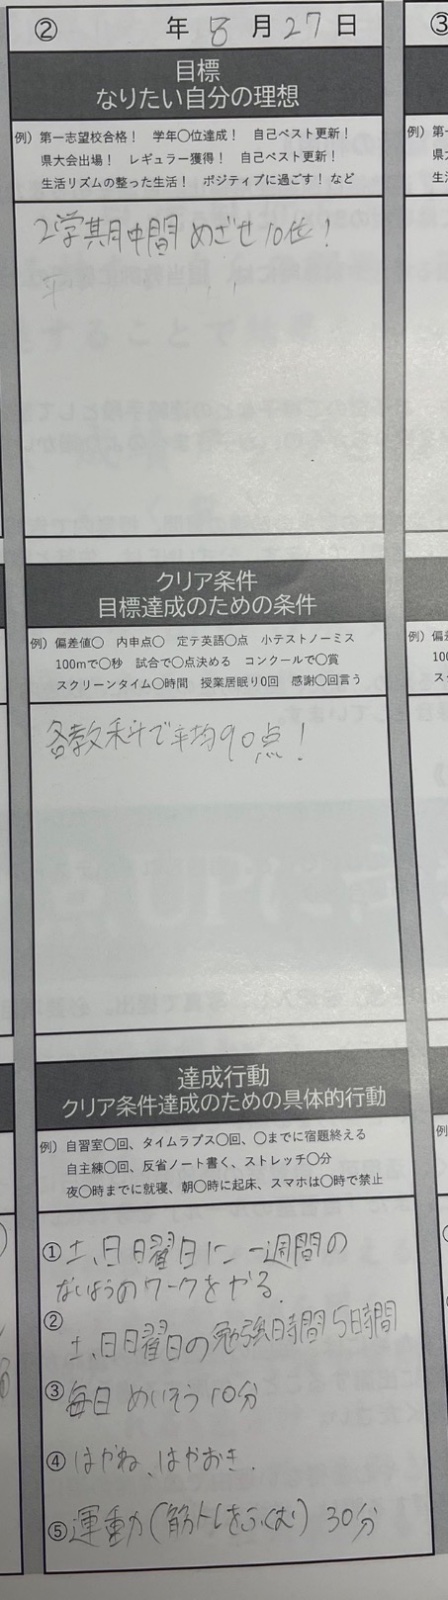 ② 年 8 月 27 日
目標
なりたい自分の理想
例）第一志望校合格！ 学年〇位達成！ 自己ベスト更新！
県大会出場！ レギュラー獲得！ 自己ベスト更新！
生活リズムの整った生活！ ポジティブに過ごす！ など
2学期中間 めざせ10位！
クリア条件
目標達成のための条件
例）偏差値〇 内申点〇 定テ英語〇点 小テストノーミス
100mで〇秒 試合で〇点決める コンクールで〇賞
スクリーンタイム〇時間 授業居眠り0回 感謝〇回言う
各教科で平均90点！
達成行動
クリア条件達成のための具体的行動
例）自習室〇回、タイムラプス〇回、〇までに宿題終える
自主練〇回、反省ノート書く、ストレッチ〇分
夜〇時までに就寝、朝〇時に起床、スマホは〇時で禁止
①土、日日曜日に一週間の
ないようのワークをやる.
②
土、日日曜日の勉強時間5時間
③毎日 めいそう10分
④はやね、はやおき.
⑤運動(筋トレをふくむ) 30分
③
例）第一
県大
生活
例）偏差
100
スク
例）